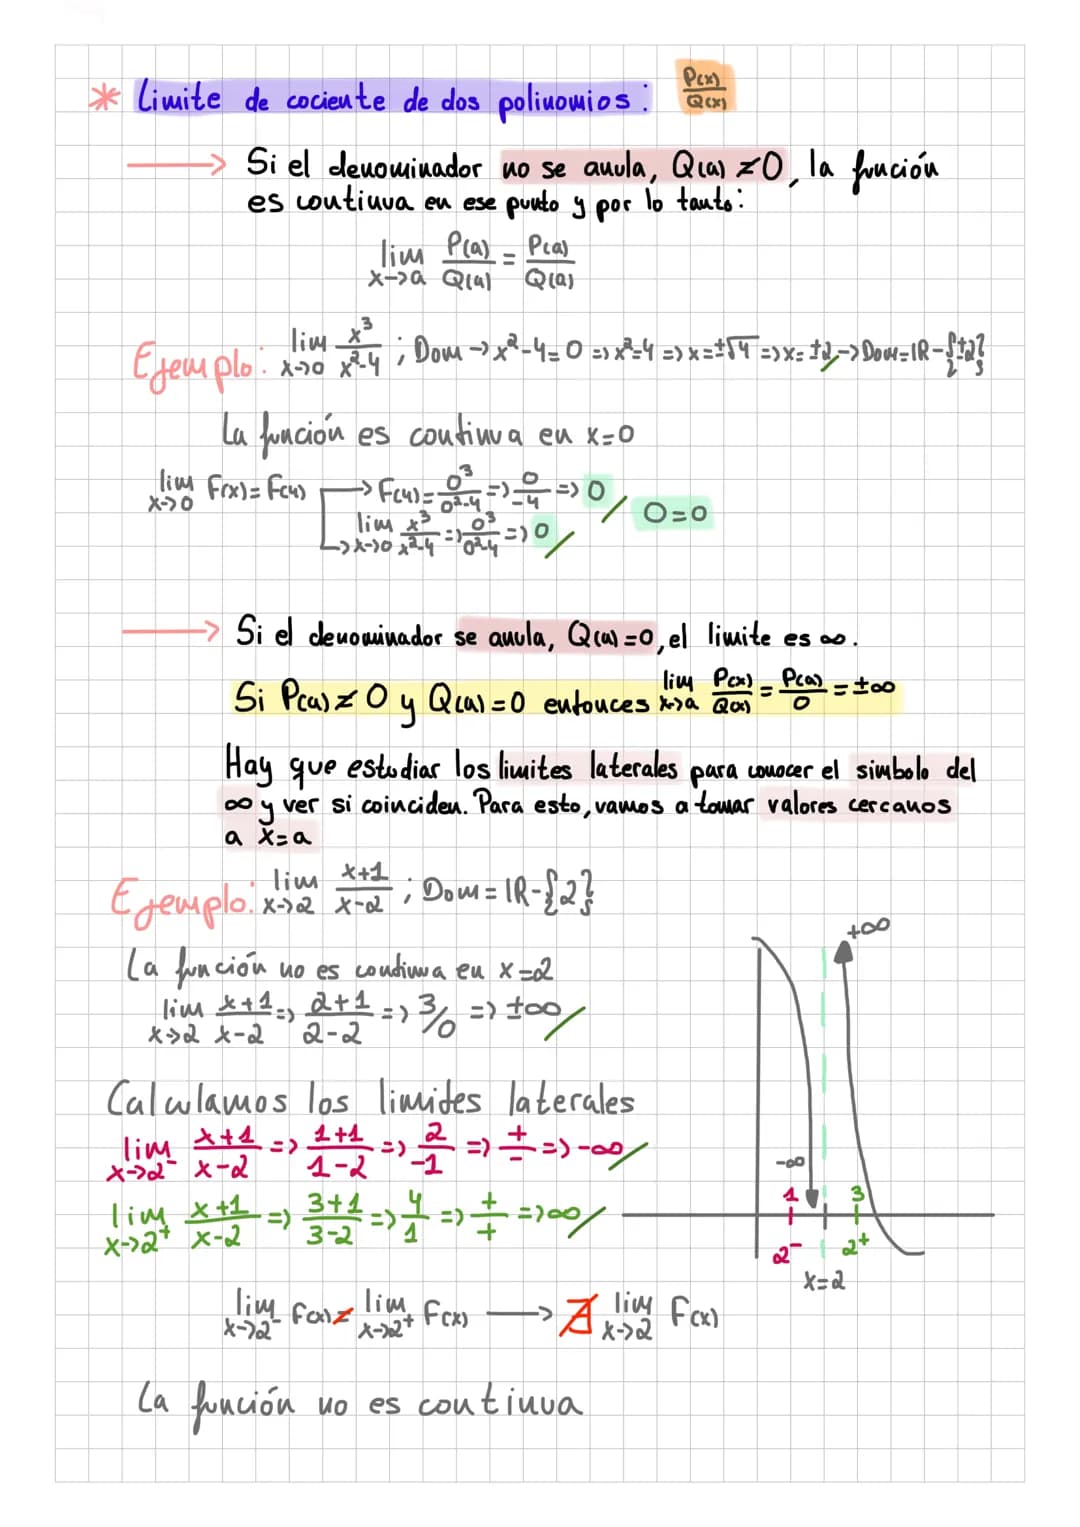 * Limite de cociente de dos polinomios: P(x)/Q(x)
→ Si el denominador no se anula, Q(a) ≠ 0, la función
es continua en ese punto y por lo tanto:
lim x→a P(a)/Q(a) = P(a)/Q(a)
Ejemplo: lim x→0 x³/x²-4 ; Dom → x²-4=0 => x²=4 => x=±√4 => x=±2 → Dom=IR-{±2}
La función es continua en x=0
lim x→0 F(x)=F(4) → F(4)= 0³/0²-4 => 0/-4 => 0
0=0
→ lim x→0 x³/x²-4 => 0³/0²-4 => 0
→ Si el denominador se anula, Q(a)=0, el limite es ∞.
Si P(a) ≠ 0 y Q(a)=0 entonces lim x→a P(x)/Q(x) = P(a)/0 = ±∞
Hay que estudiar los limites laterales para conocer el simbolo del
∞ y ver si coinciden. Para esto, vamos a tomar valores cercanos
a x=a
Ejemplo: lim x→2 x+1/x-2 ; Dom = IR-{2}
La función no es continua en x=2
lim x→2 x+1/x-2 => 2+1/2-2 => 3/0 => ±∞
Calculamos los limites laterales
lim x→2⁻ x+1/x-2 => 1+1/1-2 => 2/-1 => +/- => -∞
lim x→2⁺ x+1/x-2 => 3+1/3-2 => 4/1 => +/+ => ∞
+∞
-∞
1 3
2⁻ 2⁺
x=2
lim x→2⁻ F(x) ≠ lim x→2⁺ F(x) → ∄ lim x→2 F(x)
La función no es continua